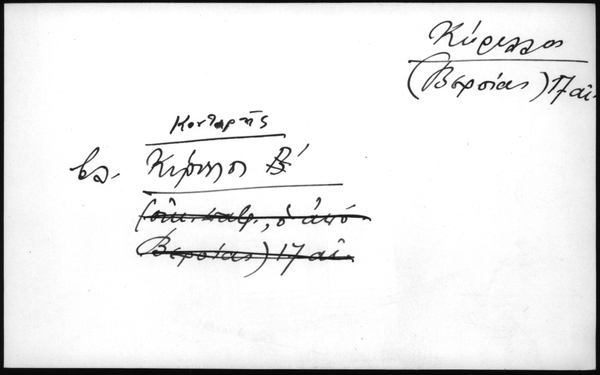 Κύριλλος
(Βεροίας) 17 αἰ.
Κονταρῆς
βλ. Κύριλλος Β΄
(οἰκ. πατρ., ὁ ἀπό
Βεροίας) 17 αἰ.